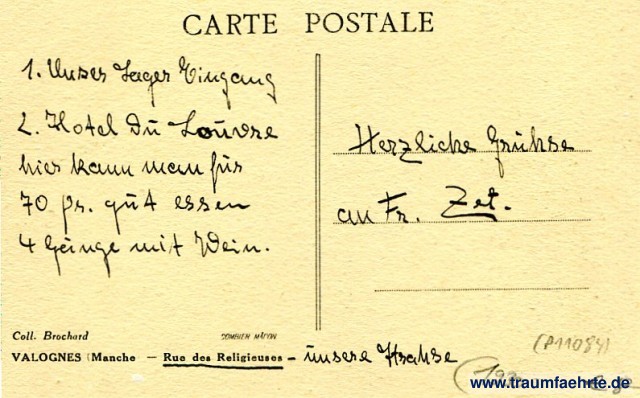 CARTE POSTALE
1. Unser Lager Eingang
2. Hotel Du Louvre
hier kann man für
70 fr. gut essen
4 Gänge mit Wein.
Herzliche Grühse
an Fr. Zet.
Coll. Brochard
VALOGNES (Manche — Rue des Religieuses - unsere Strahse
(P11084)
www.traumfaehrte.de